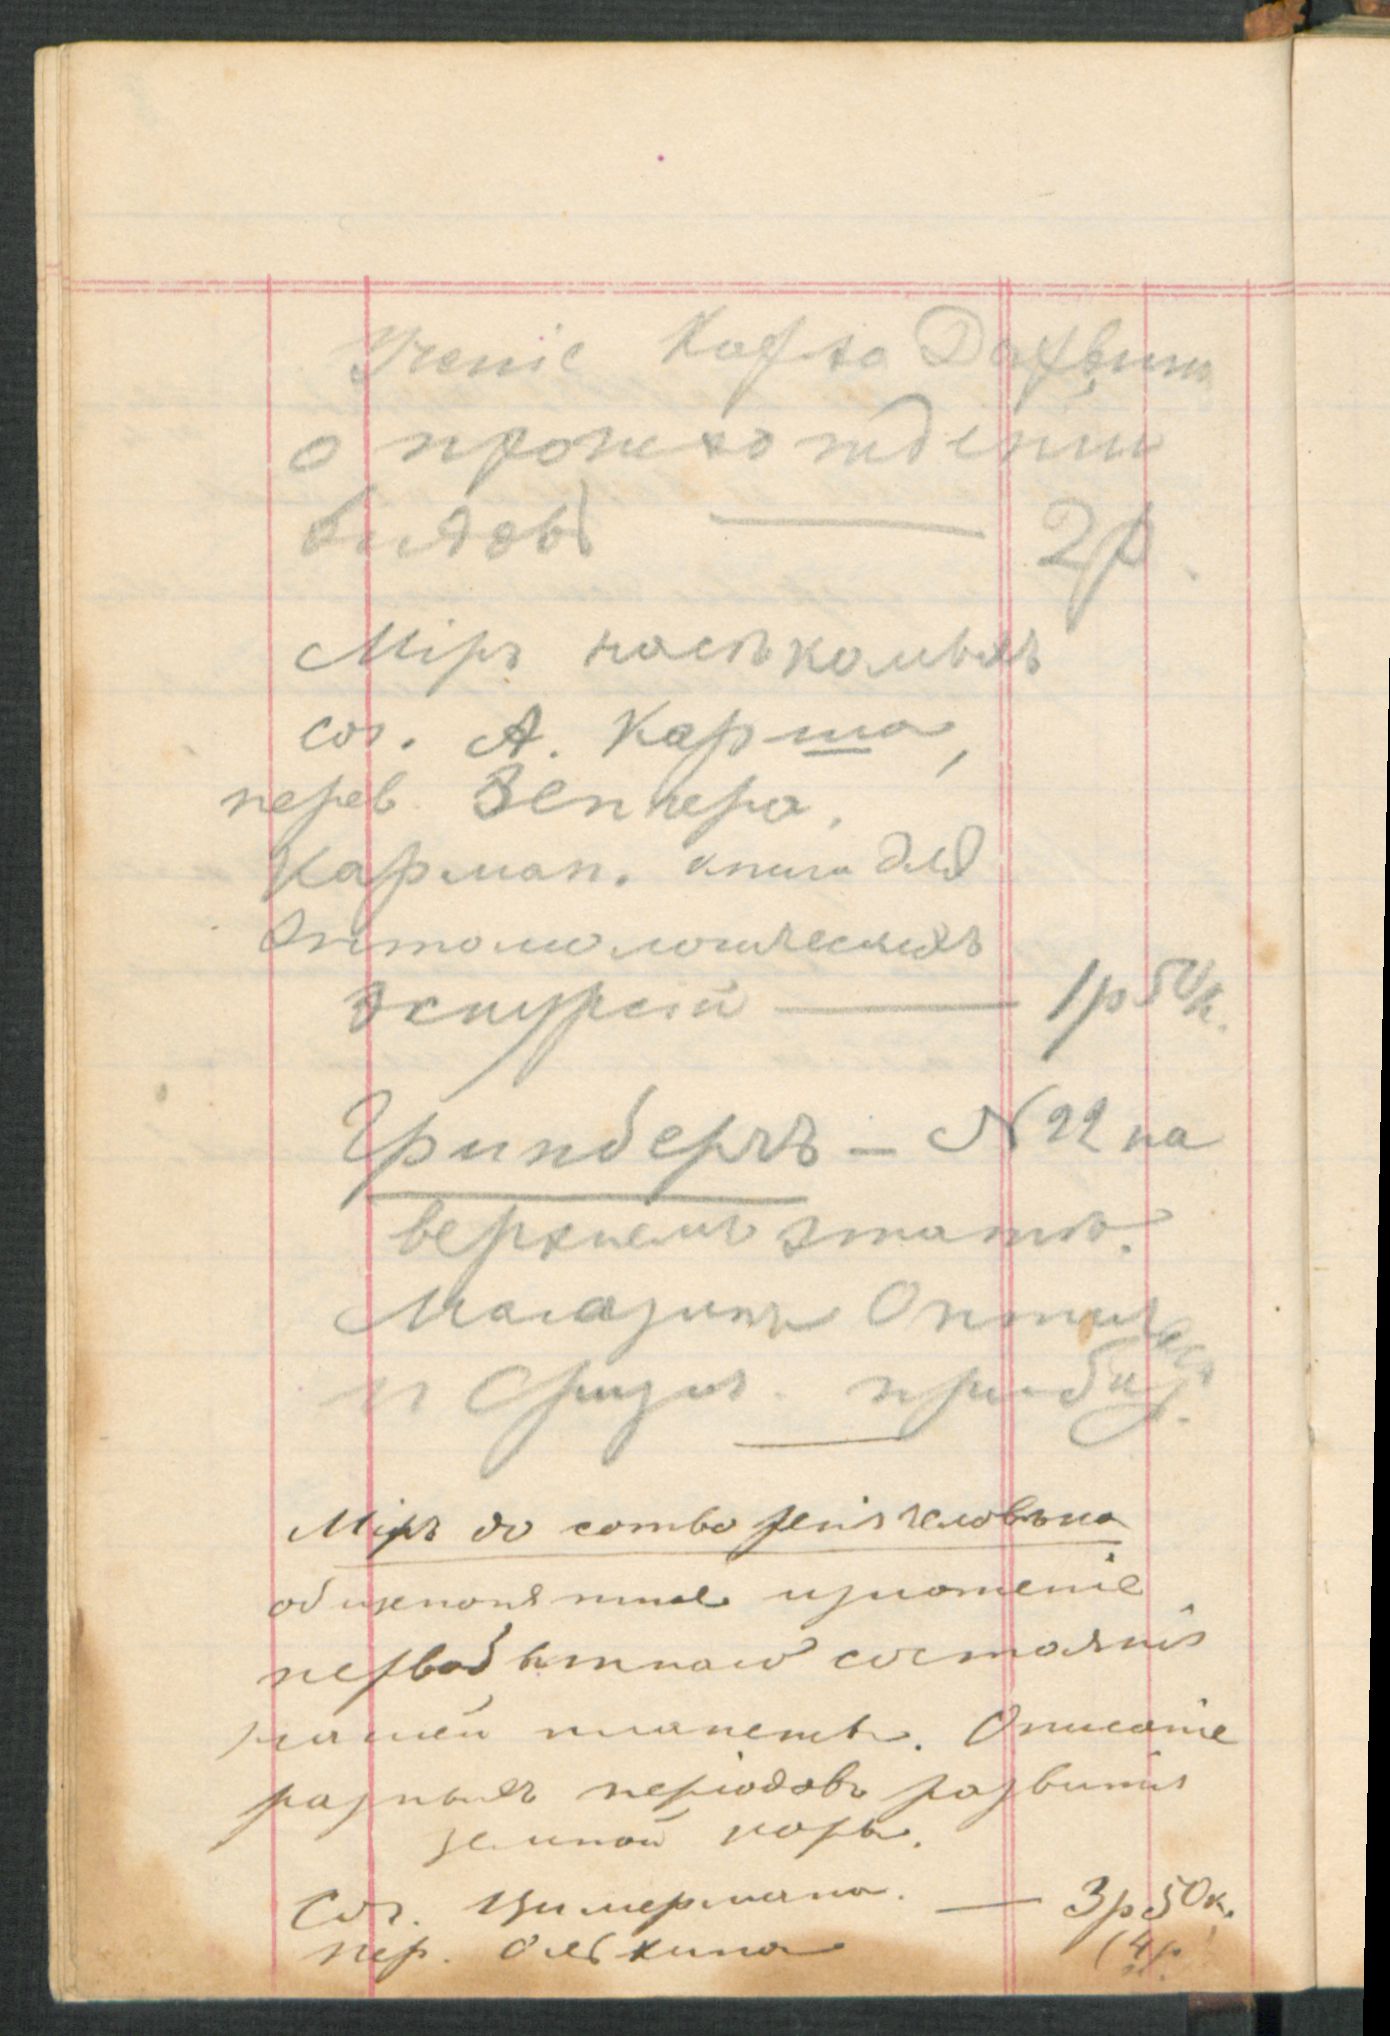 Ученіе Карла Дарвина
о происхожденіи
видовъ — 2р.
Міръ насѣкомыхъ
соч. А. Карша,
перев. Зенгера.
Карман. книга для
Энтомологическихъ
экскурсій — 1р 50к.
Гринбергъ — N 22 на
верхнемъ этажѣ.
Магазинъ Оптическ
и Физич. прибор.
Міръ до сотворенія человѣка
общепонятное изложеніе
первобытнаго состоянія
нашей планеты. Описаніе
разныхъ періодовъ развитія
земной коры.
Соч. Цимермана. — 3р 50к.
пер. Ольхина (4р.